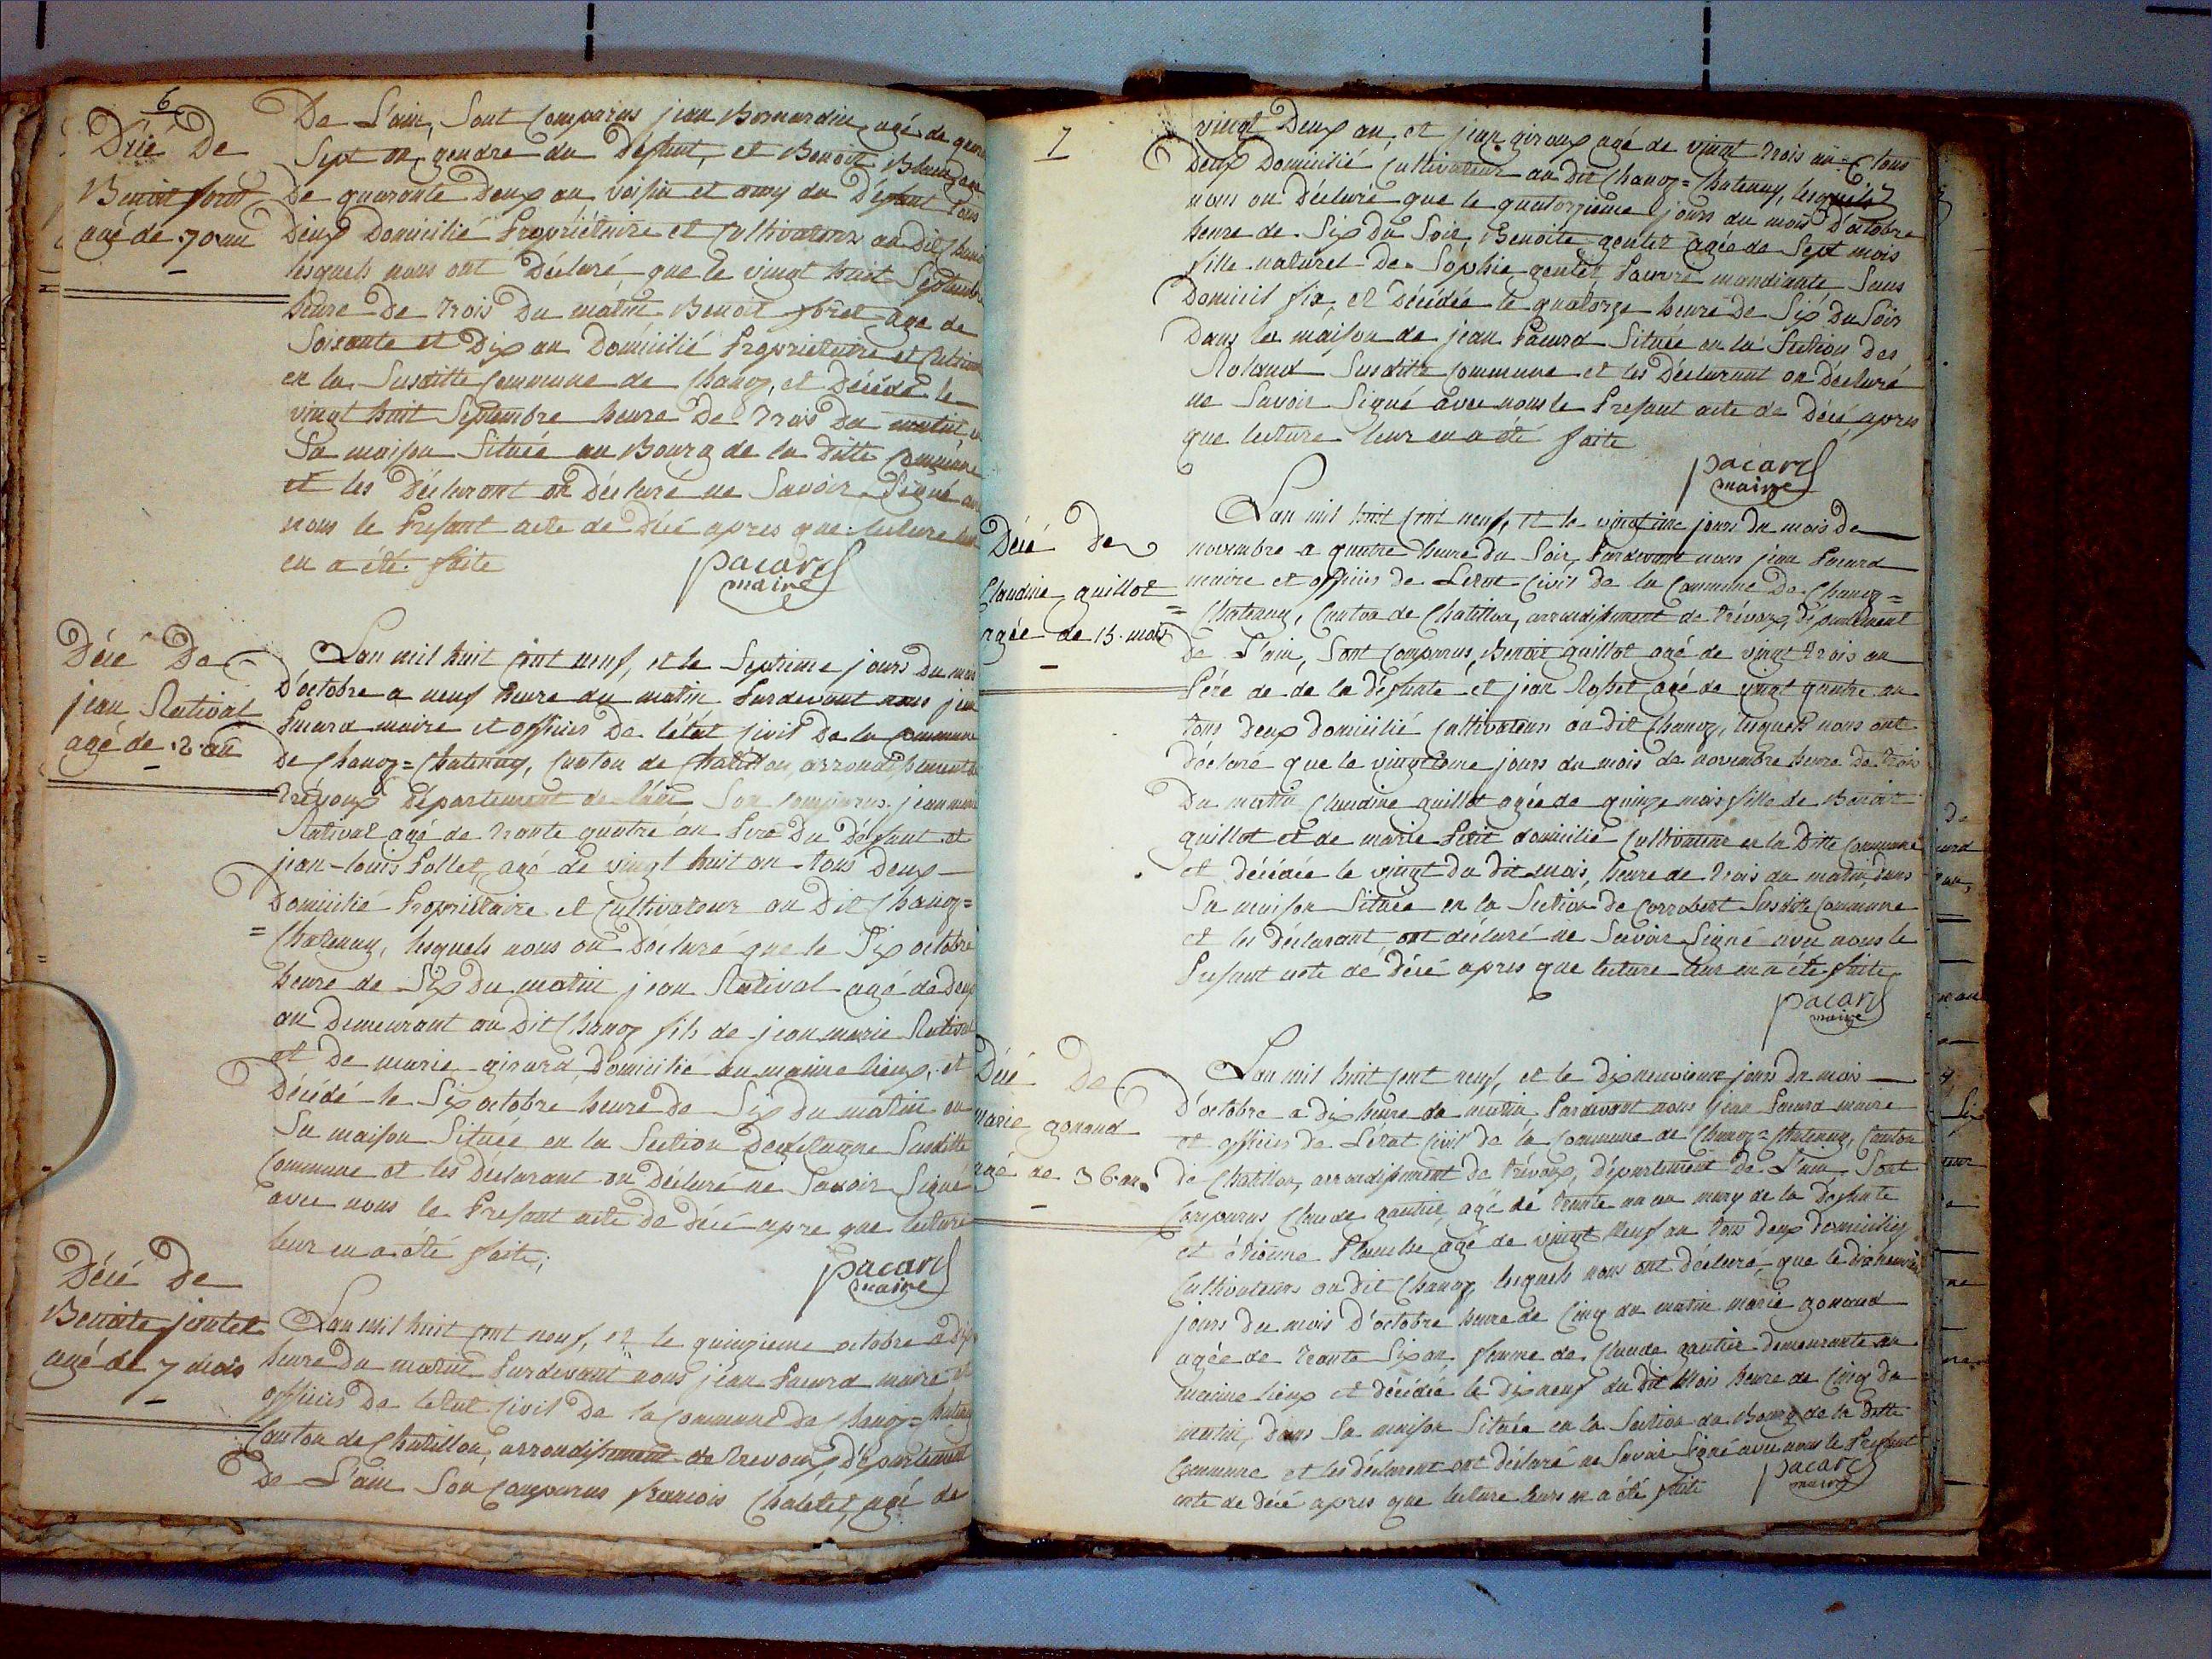 6
Décé De
Benoit foret
agé de 70 an
De L'ain, Sont Comparus jean Bernardin agé de quara
Sept an, gendre du Deffunt, et Benoit
De quarante Deux an voisin et amy du Deffunt tous
Deux Domicilié Propriétaire et Cultivateur au Dit Chano
lesquels nous ont Déclaré que le vingt huit Septembre
heure De trois Du matin Benoit foret age de
Soisante et Dix an Domicilié Propriétaire et Cultiva
en la Susditte Commune de Chanoz, et Décédé le
vingt huit Septembre heure De trois Du matin, en
Sa maison Située au Bourg de la ditte Commune
et les Déclarant on Déclaré ne Savoir Signé avec
nous le Presant acte de Décé apres que lecture leur
en a été faite
pacard
maire
Décé De
jean Rativat
agé de 2 an
Lan mil huit cent neuf, et le Septième jours Du mois
D'octobre a neuf heure du matin Pardevant nous jean
Pacard maire et officies De létat Civil De la Commune
De Chanoz=Chatenay, Canton de Chatillon, arrondissement de
trévoux Département de l'ain Son Comparus jean marie
Rativat agé de trante quatre an Pere Du Deffunt et
jean-louis Pollet, agé de vingt huit an tous Deux
Domicilié Propriétaire et Cultivateur au Dit Chanoz=
=Chatenay, lesquels nous on Déclaré que le Six octobre
heure de Six Du matin jean Rativat agé de Deux
an Demeurant au Dit Chanoz fils de jean marie Rativat
et De marie girard, Domicilié au maime lieux, et
Décédé le Six octobre heure De Six Du matin en
Sa maison Située en la Section Susditte
Commune et les Déclarant on Déclaré ne Savoir Signé
avec nous le Presant acte De Décé apre que lecture
leur en a été faite;
pacard
maire
Décé De
Benoite jentet
agé de 7 mois
Lan mil huit cent neuf, et le quinzieme octobre a Dix
heure Du matin Pardevant nous jean Pacard maire et
officies De letat Civil De la Commune De Chanoz=Chatenay
Canton de Chatillon, arrondissement de trevoux, Département
De L'ain Son Comparus francois Chatelet, agé de
7
vingt Deux an, et jean giroux agé de vingt trois an tous
Deux Domicilié Cultivateur au Dit Chanoz=Chatenay, lesquels
nous on Déclaré que le quatorzieme jours du mois D'octobre
heure de Six Du Soir, Benoite gentet agée de Sept mois
fille naturel De Sophie gentet Pauvre mandiante Sans
Domicil fix, et Décédée le quatorze heure De Six Du Soir
Dans la maison de jean Pacard Située en la Section Des
Roland Susditte Commune et les Déclarant on Déclaré
ne Savoir Signé avec nous le Presant acte de Décé apres
que lecture leur en a été faite
pacard
maire
Décé De
Claudine guillot
agée de 15 mois
Lan mil huit cent neuf, et le vingtime jours Du mois De
novembre a quatre heure Du Soir, Pardevant nous jean Pacard
maire et officies De Letat Civil De la Commune De Chanoz=
=Chatenay, Canton de Chatillon, arrondissement de trévoux Département
De L'ain, Sont Comparus, Benoit guillot agé de vingt trois an
Père de de la Deffunte et jean Rosset agé de vingt quatre an
tous deux domicilié Cultivateurs au dit Chanoz, lesquels nous ont
Déclaré que le vingtieme jours du mois de novembre heure De trois
Du matin Claudine guillot agée de quinze mois fille de Benoit
guillot et de marie Petit domicilié Cultivateur en la Ditte Commune
et décédée le vingt du dit mois, heure de trois du matin, dans
Sa maison Située en la Section De Corrobert Susditte Commune
et les déclarant ont déclaré ne Savoir Signé avec nous le
Presant acte de Décé apres que lecture leur en a été faite
pacard
maire
Décé De
marie gonand
agé de 36 an
Lan mil huit cent neuf, et le dix neuvieme jours Du mois
D'octobre a dix heure du matin Pardevant nous jean Pacard maire
et officies De Létat Civil De la Commune de Chanoz=Chatenay, Canton
de Chatillon, arrondissement de trévoux, Département De L'ain, Sont
Comparus Claude gautier agé de trante un an mary de la Deffunte
et étienne Planche agé de vingt neuf an tous deux domiciliez
Cultivateurs au dit Chanoz lesquels nous ont déclaré, que le dix neuvième
jours du mois D'octobre heure de Cinq du matin marie gonand
agée de trante Six an, femme de Claude gautier demeurante au
maime lieux et décédée le dix neuf du dit mois heure de Cinq du
matin, dans Sa maison Située en la Section du Bourg de la ditte
Commune et les déclarent ont déclaré ne Savoir Signé avec nous le Presant
acte de Décé apres que lecture leurs en a été faite
pacard
maire